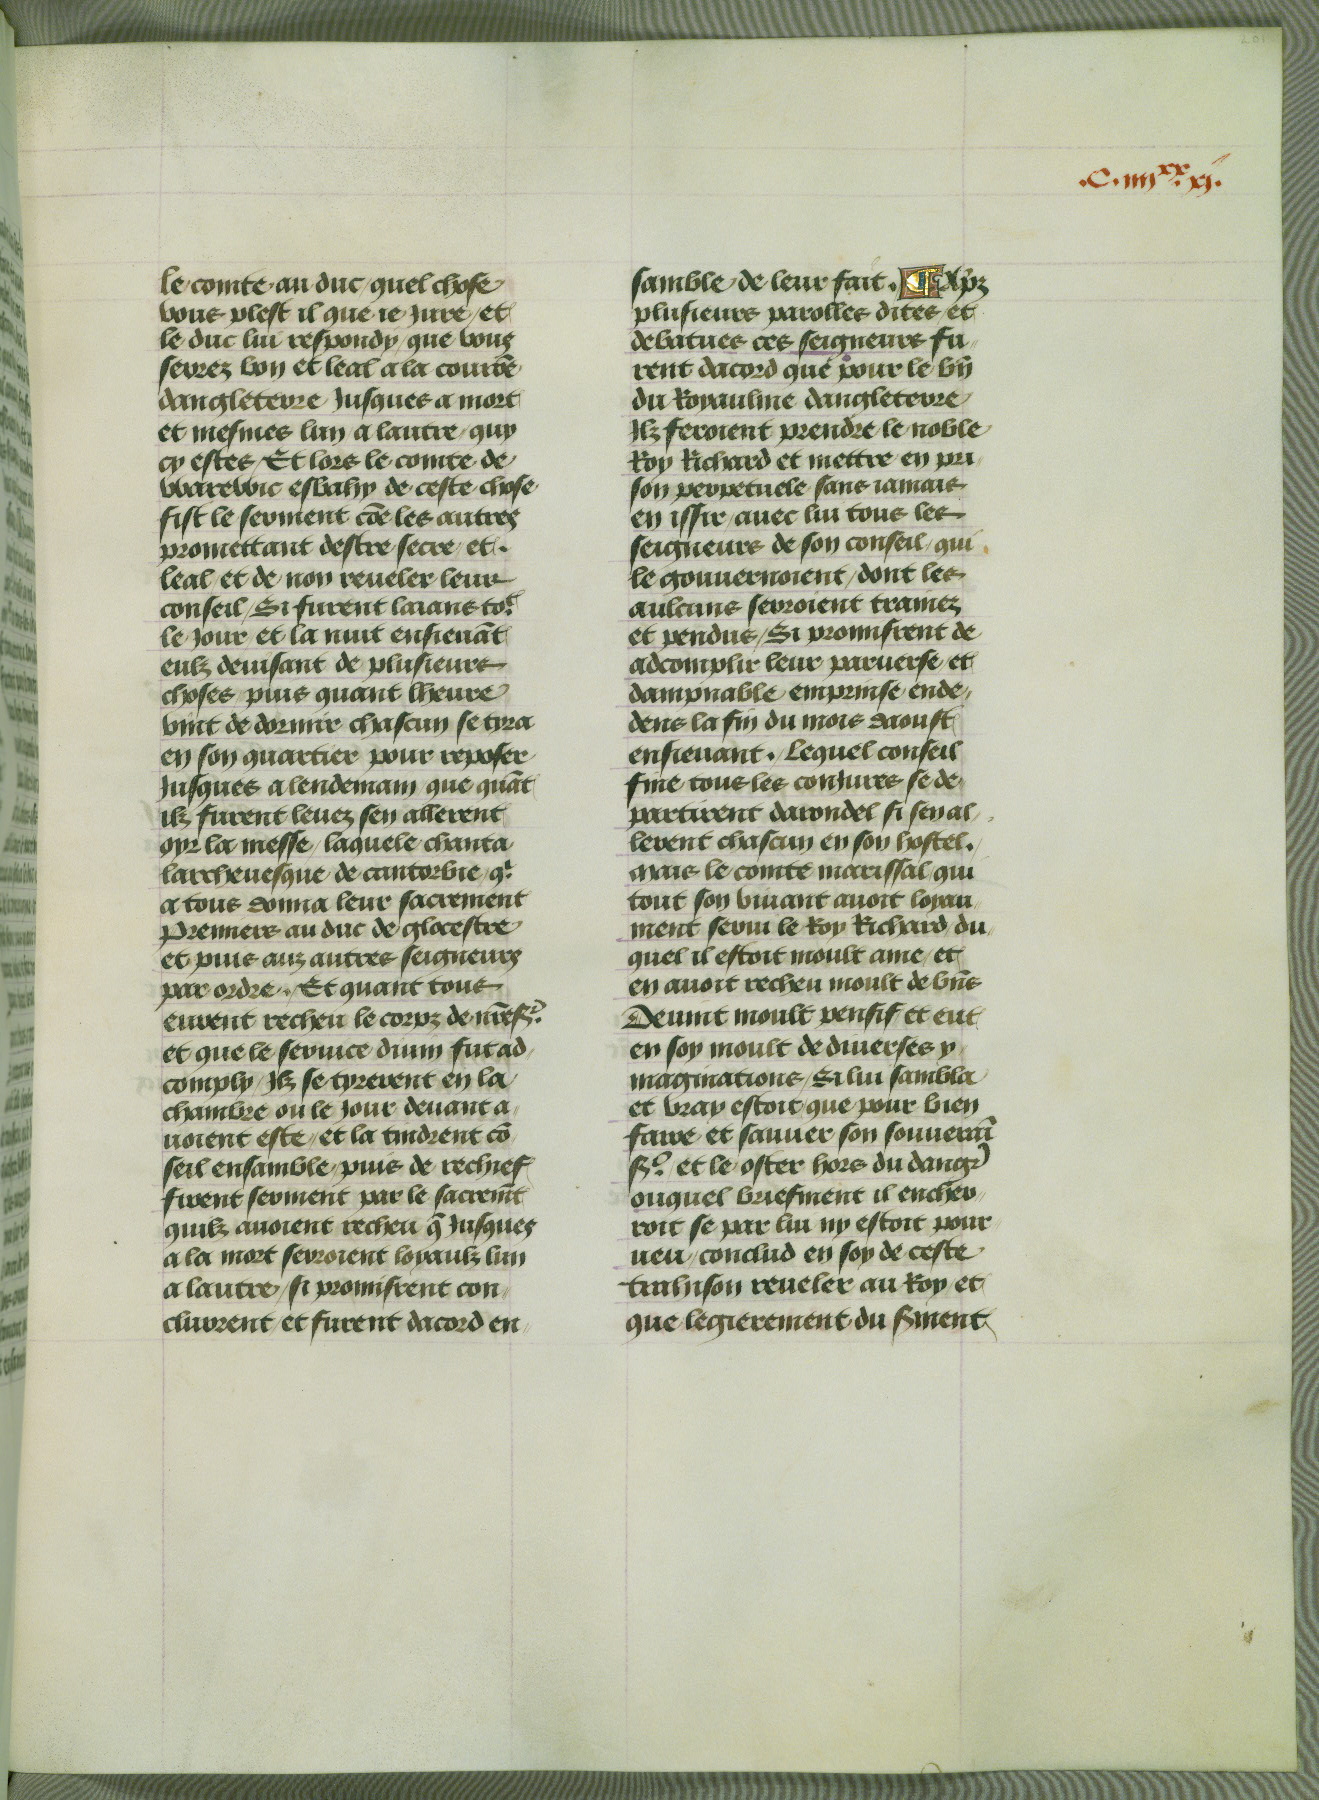 .C.iiijxx.xj.
le comte au duc quel chose
vous plest il que ie Jure et
le duc lui respondy que vous
serez bon et leal a la couroñe
dangleterre Jusques a mort
et mesmes lun a lautre quy
cy estes / Et lors le comte de
warewic esbahy de ceste chose
fist le serment cõe les autres
promettant destre secre et.
leal et de non reueler leur
conseil / Si furent laians to9
le Jour et la nuit ensieuãt
eulz deuisant de plusieurs
choses puis quant lheure
vint de dormir chascun se tyra
en son quartier pour reposer
Jusques a lendemain que quãt
ilz furent leuez sen allerent
oyr la messe / laquele chanta
larcheuesque de cantorbie q̃
a tous donna leur sacrement
Premiers au duc de glocestre
et puis aux autres seigneurs
par ordre. / Et quant tous
eurent recheu le corpz de nr̃e Sr.
et que le seruice diuin fut ad
comply / Ilz se tyrerent en la
chambre ou le Jour deuant a
uoient este / et la tindrent cõ
seil ensamble / puis de rechief
firent serment par le sacremẽt
quilz auoient recheu q̃ Jusques
a la mort seroient loyaulz lun
a lautre / si promisrent con
clurent et furent dacord en
samble de leur fait. ¶ Apz
plusieurs parolles dites et
debatues ces seigneurs fu
rent dacord que pour le bñ
du Royaulme dangleterre
Ilz feroient prendre le noble
Roy Richard et mettre en pri
son perpetuele sans iamais
en issir / auec lui tous les
seigneurs de son conseil qui
le gouuernoient / dont les
aulcuns seroient trainez
et pendus / Si promisrent de
adcomplir leur peruerse et
dampnable emprinse ende
dens la fin du mois daoust
ensieuant. / Lequel conseil
fine tous les conJures se de
partirent darondel si sen al
lerent chascun en son hostel.
mais le comte marissal qui
tout son viuant auoit loyau
ment serui le Roy Richard du
quel il estoit moult ame et
en auoit recheu moult de bñs
Deuint moult pensif et eut
en soy moult de diuerses y
maginations / Si lui sambla
et vray estoit que pour bien
faire et sauuer son souuerai
Sr. et le oster hors du dangr
ouquel briefment il encher
roit se par lui ny estoit pour
ueu / conclud en soy de ceste
trahison reueler au Roy et
que legierement du Sment